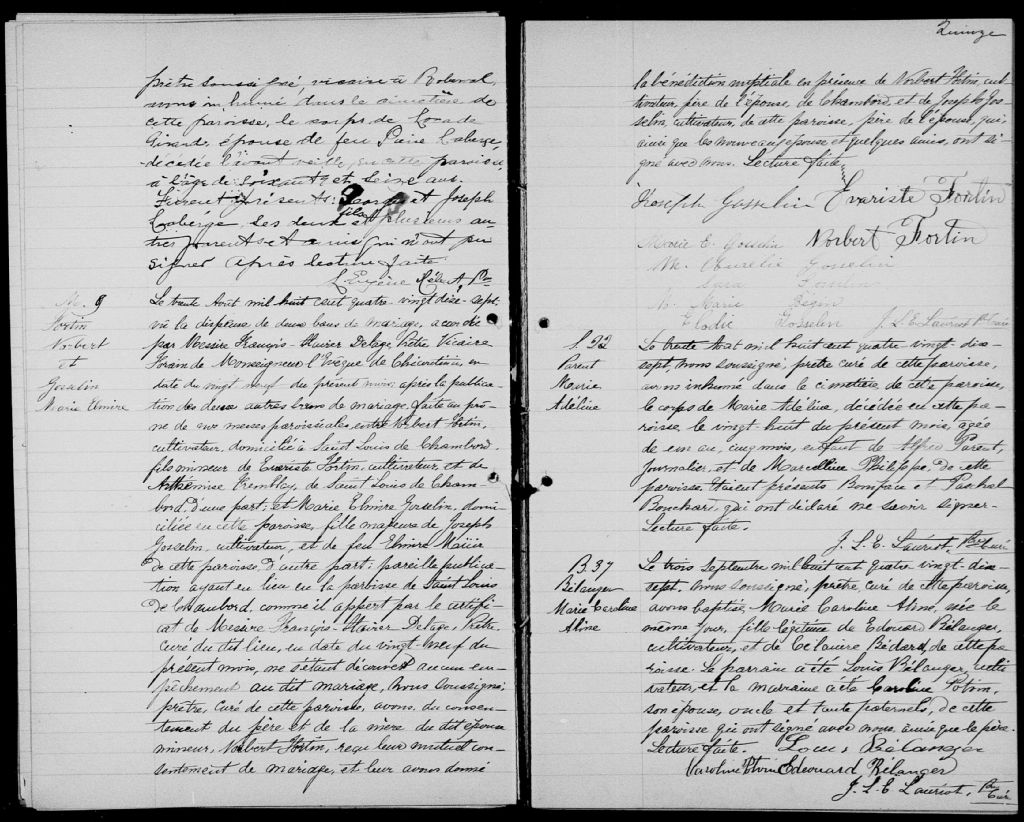 prêtre soussigné, vicaire à Roberval,
avons inhumé dans le cimetière de
cette paroisse, le corps de
Girard, épouse de feu Pierre Laberge,
décédée l'avant veille, en cette paroisse
à l'âge de soixante et seize ans.
Furent présents: et Joseph
Laberge, les deux fils et plusieurs au-
tres parents et amis qui n'ont pu
signer après lecture faite.
L. Eugène Ptre
M. 9
Fortin
Norbert
et
Gosselin
Marie Elmire
Le trente Aout mil huit cent quatre vingt dix-sept,
vu la dispense de deux bans de mariage, accordée
par Messire François-Xavier Delage, Prêtre Vicaire
Forain de Monseigneur l'Evêque de Chicoutimi, en
date du vingt neuf du présent mois, après la publica-
tion des deux autres bans de mariage, faite au prô-
ne de nos messes paroissiales entre Norbert Fortin,
cultivateur, domicilié à Saint Louis de Chambord,
fils mineur de Evariste Fortin, cultivateur, et de
Arthémise Tremblay, de Saint Louis de Cham-
bord, d'une part; et Marie Elmire Gosselin, domi-
ciliée en cette paroisse, fille majeure de Joseph
Gosselin, cultivateur, et de feu Elmire
de cette paroisse d'autre part; pareille publica-
tion ayant eu lieu en la paroisse de Saint Louis
de Chambord, comme il appert par le certifi-
cat de Messire François-Xavier Delage, Prêtre
Curé du dit lieu, en date du vingt-neuf du
présent mois, ne s'étant découvert aucun em-
pêchement au dit mariage, Nous soussigné,
prêtre, Curé de cette paroisse, avons, du consen-
tement du père et de la mère du dit époux
mineur, Norbert Fortin, reçu leur mutuel con-
sentement de mariage, et leur avons donné
Quinze
la bénédiction nuptiale en présence de Norbert Fortin, cul-
tivateur, père de l'épouse, de Chambord, et de Joseph Gos-
selin, cultivateur, de cette paroisse, père de l'épouse, qui,
ainsi que les nouveaux époux et quelques amis, ont si-
gné avec nous. Lecture faite.
Joseph Gosselin Evariste Fortin
Marie E. Gosselin Norbert Fortin
M. Aurelie Gosselin
Sara
M. Marie
Elodie Gosselin J. L. E. Lauriot Ptre Curé
S. 22
Parent
Marie
Adéline
Le trente Aout mil huit cent quatre vingt-dix-
sept, Nous soussigné, prêtre curé de cette paroisse,
avons inhumé dans le cimetière de cette paroisse,
le corps de Marie Adéline, décédée en cette pa-
roisse, le vingt-huit du présent mois, agée
de un an, cinq mois, enfant de Alfred Parent,
Journalier, et de Marcelline Philippe, de cette
paroisse. Etaient présents Boniface et Paschal
Bouchard, qui ont déclaré ne savoir signer.
Lecture faite.
J. L. E. Lauriot, Ptre Curé
B. 37
Bélanger
Marie Caroline
Aline
Le trois Septembre mil huit cent quatre vingt-dix-
sept, Nous soussigné, prêtre, curé de cette paroisse,
avons baptisé Marie Caroline Aline, née le
même jour, fille légitime de Edouard Bélanger,
cultivateur, et de Célanire Bédard, de cette pa-
roisse. Le parrain a été Louis Bélanger, culti-
vateur, et la marraine a été Caroline Potvin,
son épouse, oncle et tante paternels, de cette
paroisse qui ont signé avec nous, ainsi que le père.
Lecture faite. Louis Bélanger
Karoline Potvin Edeouard Bélanger
J. L. E. Lauriot, Ptre Curé